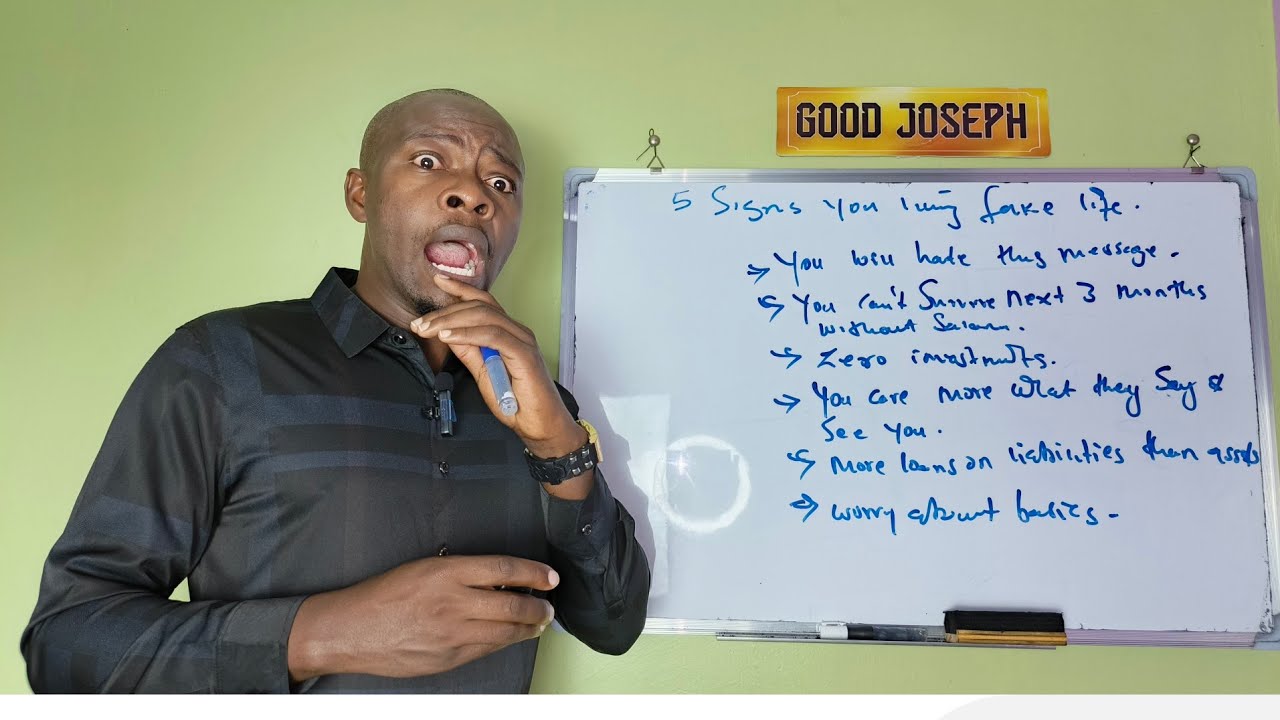 GOOD JOSEPH
5 Signs You living fake life.
You will hate this message.
You can't Survive next 3 months
without Salary.
Zero investments.
You care more what they say &
See you.
More loans on liabilities than assets
worry about basics.